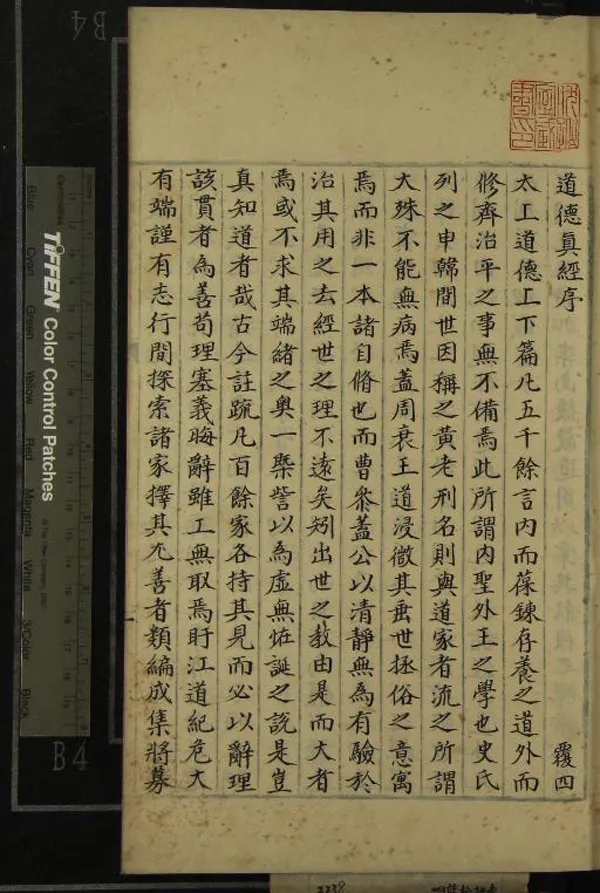 道德真經序 覆四
太上道德上下篇凡五千餘言内而葆鍊存養之道外而
修齊治平之事無不備焉此所謂内聖外王之學也史氏
列之申韓間世因稱之黄老刑名則與道家者流之所謂
大殊不能無病焉蓋周衰王道浸微其垂世拯俗之意寓
焉而非一本諸自脩也而曹參蓋公以清靜無為有驗於
治其用之去經世之理不遠矣矧出世之教由是而大者
焉或不求其端緒之奥一槩訾以為虚無恠誕之説是豈
真知道者哉古今註疏凡百餘家各持其見而必以辭理
該貫者為善苟理塞義晦辭雖工無取焉盱江道紀危大
有端謹有志行間探索諸家擇其尤善者類編成集將募
TIFFEN Color Control Patches
Blue
Cyan
Green
Yellow
Red
Magenta
White
3/Color
Black
B4
B4